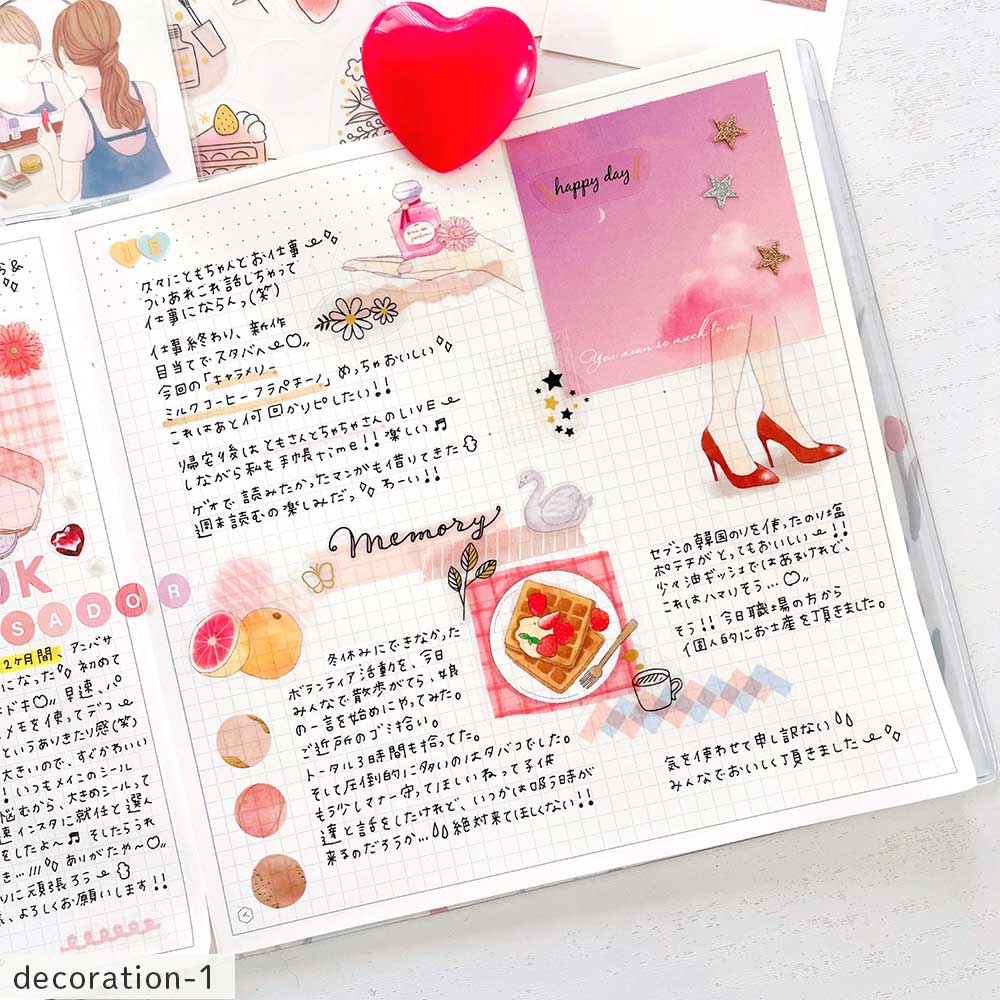 happy day
You mean so much to me
久々にともちゃんとお仕事
ついあれこれ話しちゃって
仕事にならんっ(笑)
仕事終わり、新作
目当てでスタバへ
今回の「キャラメリー
ミルクコーヒーフラペチーノ」めっちゃおいしい
これはあと何回かリピしたい!!
帰宅後はともさんとちゃちゃさんのLIVE
しながら私も手帳time!!楽しい♬
ゲオで読みたかったマンガも借りてきた
週末読むの楽しみだっ わーい!!
Memory
セブンの韓国のりを使ったのり塩
ポテチがとってもおいしい!!
少々油ギッシュではあるけれど、
これはハマりそう…♡
そう!!今日職場の方から
個人的にお土産を頂きました。
冬休みにできなかった
ボランティア活動を、今日
みんなで散歩がてら、娘
の一言を始めにやってみた。
ご近所のゴミ拾い。
トータル3時間も拾ってた。
そして圧倒的に多いのはタバコでした。
もう少しマナー守ってほしいねって子供
達と話をしたけれど、いつかは吸う時が
来るのだろうか…絶対来てほしくない!!
気を使わせて申し訳ない
みんなでおいしく頂きました
OK
SADOR
2ヶ月間、アンバサ
になった 初めて
ドキ♡ 早速、パ
メモを使ってデコ
というありきたり感(笑)
大きいので、すぐかわいい
!いつもメインのシール
悩むから、大きめシールって
インスタに就任と選ん
をしたよ〜♬ そしたらうれ
き…!!! ありがたや〜♡
りに頑張ろう
、よろしくお願いします!!
decoration-1